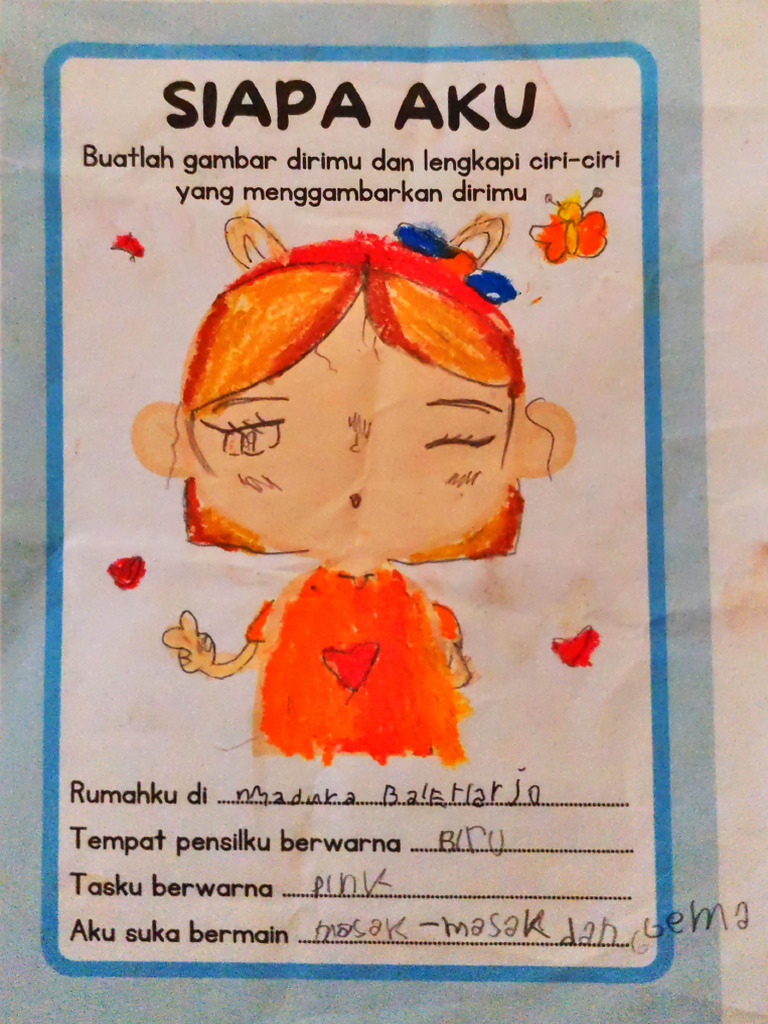 SIAPA AKU
Buatlah gambar dirimu dan lengkapi ciri-ciri
yang menggambarkan dirimu
Rumahku di madura
Tempat pensilku berwarna BIrU
Tasku berwarna pink
Aku suka bermain masak-masak dan Gema